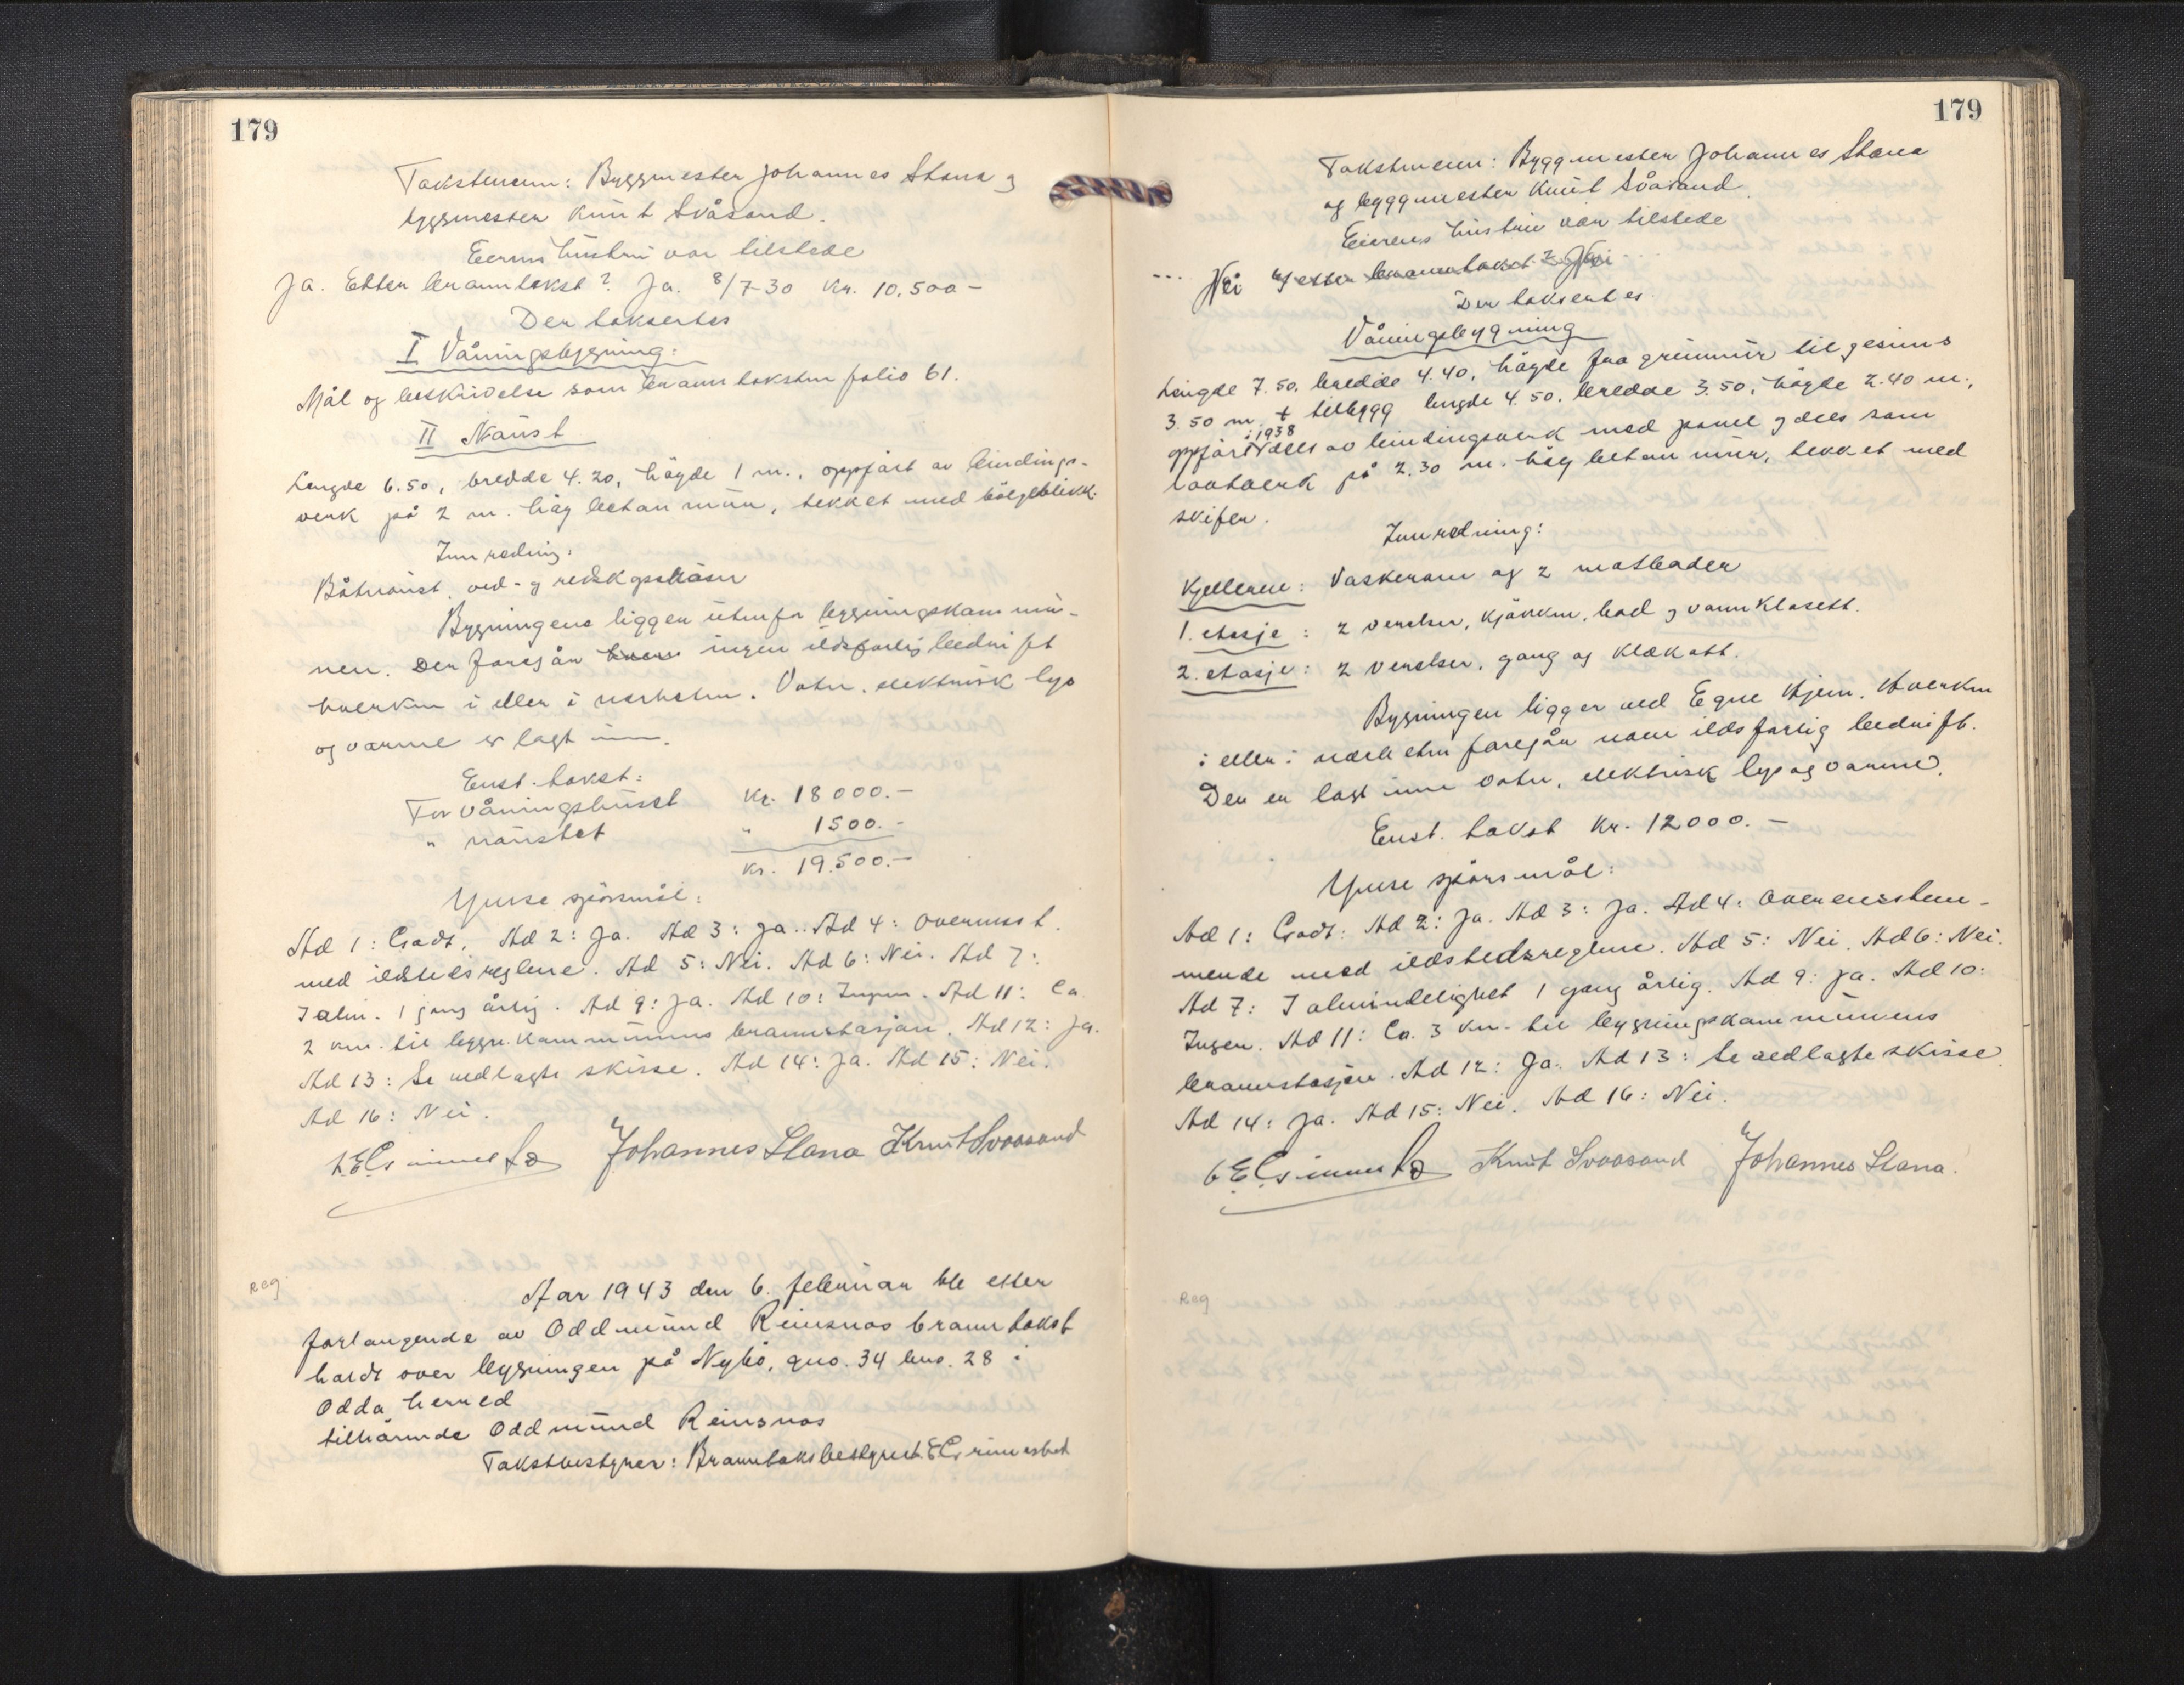 179
Takstmenn: Byggmester Johannes Stana og
byggmester Knut Svåsand.
Eierens hustru var tilstede
Ja. Etter branntakst? Ja. 8/7-30 Kr. 10.500-
Der taksertes
I Våningsbygning:
Mål og beskrivelse som branntaksten folio 61.
II Naust
Lengde 6.50, bredde 4.20, høgde 1 m., oppført av bindings-
verk på 2 m. høg betonmur, tekket med bølgeblikk.
Innredning:
Båtnaust, ved- og redskapshus
Bygningene ligger utenfor bygningskommu-
nen. Der foregår ingen ildsfarlig bedrift
hverken i eller i nærheten. Vatn, elektrisk lys
og varme er lagt inn.
Enst. takst:
For våningshuset Kr. 18000.-
" naustet " 1500.-
Kr. 19.500.-
Ymse spørsmål:
Ad 1: Godt. Ad 2: Ja. Ad 3: Ja. Ad 4: Overensst.
med ildstedsreglene. Ad 5: Nei. Ad 6: Nei. Ad 7:
I alm. 1 gang årlig. Ad 9: Ja. Ad 10: Ingen. Ad 11: Ca
2 km. til bygn. kommunens brannstasjon. Ad 12: Ja.
Ad 13: Se vedlagte skisse. Ad 14: Ja. Ad 15: Nei.
Ad 16: Nei.
Johannes Stana Knut Svaasand
Reg.
Aar 1943 den 6. februar ble etter
forlangende av Oddmund Reinsnos branntakst
holdt over bygningen på Nybø, gno. 34 bno. 28 i
Odda herred
tilhørende Oddmund Reinsnos
Takstbestyrer: Branntakstbestyrer E. Grimestad
179
Takstmenn: Byggmester Johannes Stana
og byggmester Knut Svåsand
Eierens hustru var tilstede
... Nei Ny etter branntakst? Nei
Der taksertes
Våningsbygning
Lengde 7.50, bredde 4.40, høgde fra grunnmur til gesims
3.50 m. + tilbygg lengde 4.50, bredde 3.50, høgde 2.40 m.,
oppført i 1938 dels av bindingsverk med panel og dels som
laftverk på 2.30 m. høg betonmur, tekket med
skifer.
Innredning:
Kjelleren: Vaskerom og 2 matboder
1. etasje: 2 verelser, kjøkken, bad og vannklosett.
2. etasje: 2 verelser, gang og kleskott.
Bygningen ligger ved Egne Hjem. Hverken
i eller i nærheten foregår noen ildsfarlig bedrift.
Der er lagt inn vatn, elektrisk lys og varme.
Enst. takst Kr. 12000.-
Ymse spørsmål:
Ad 1: Godt. Ad 2: Ja. Ad 3: Ja. Ad 4: Overensstem-
mende med ildstedsreglene. Ad 5: Nei. Ad 6: Nei.
Ad 7: I almindelighet 1 gang årlig. Ad 9: Ja. Ad 10:
Ingen. Ad 11: Ca. 3 km. til bygningskommunens
brannstasjon. Ad 12: Ja. Ad 13: Se vedlagte skisse
Ad 14: Ja. Ad 15: Nei. Ad 16: Nei.
Knut Svaasand Johannes Stana.
Reg